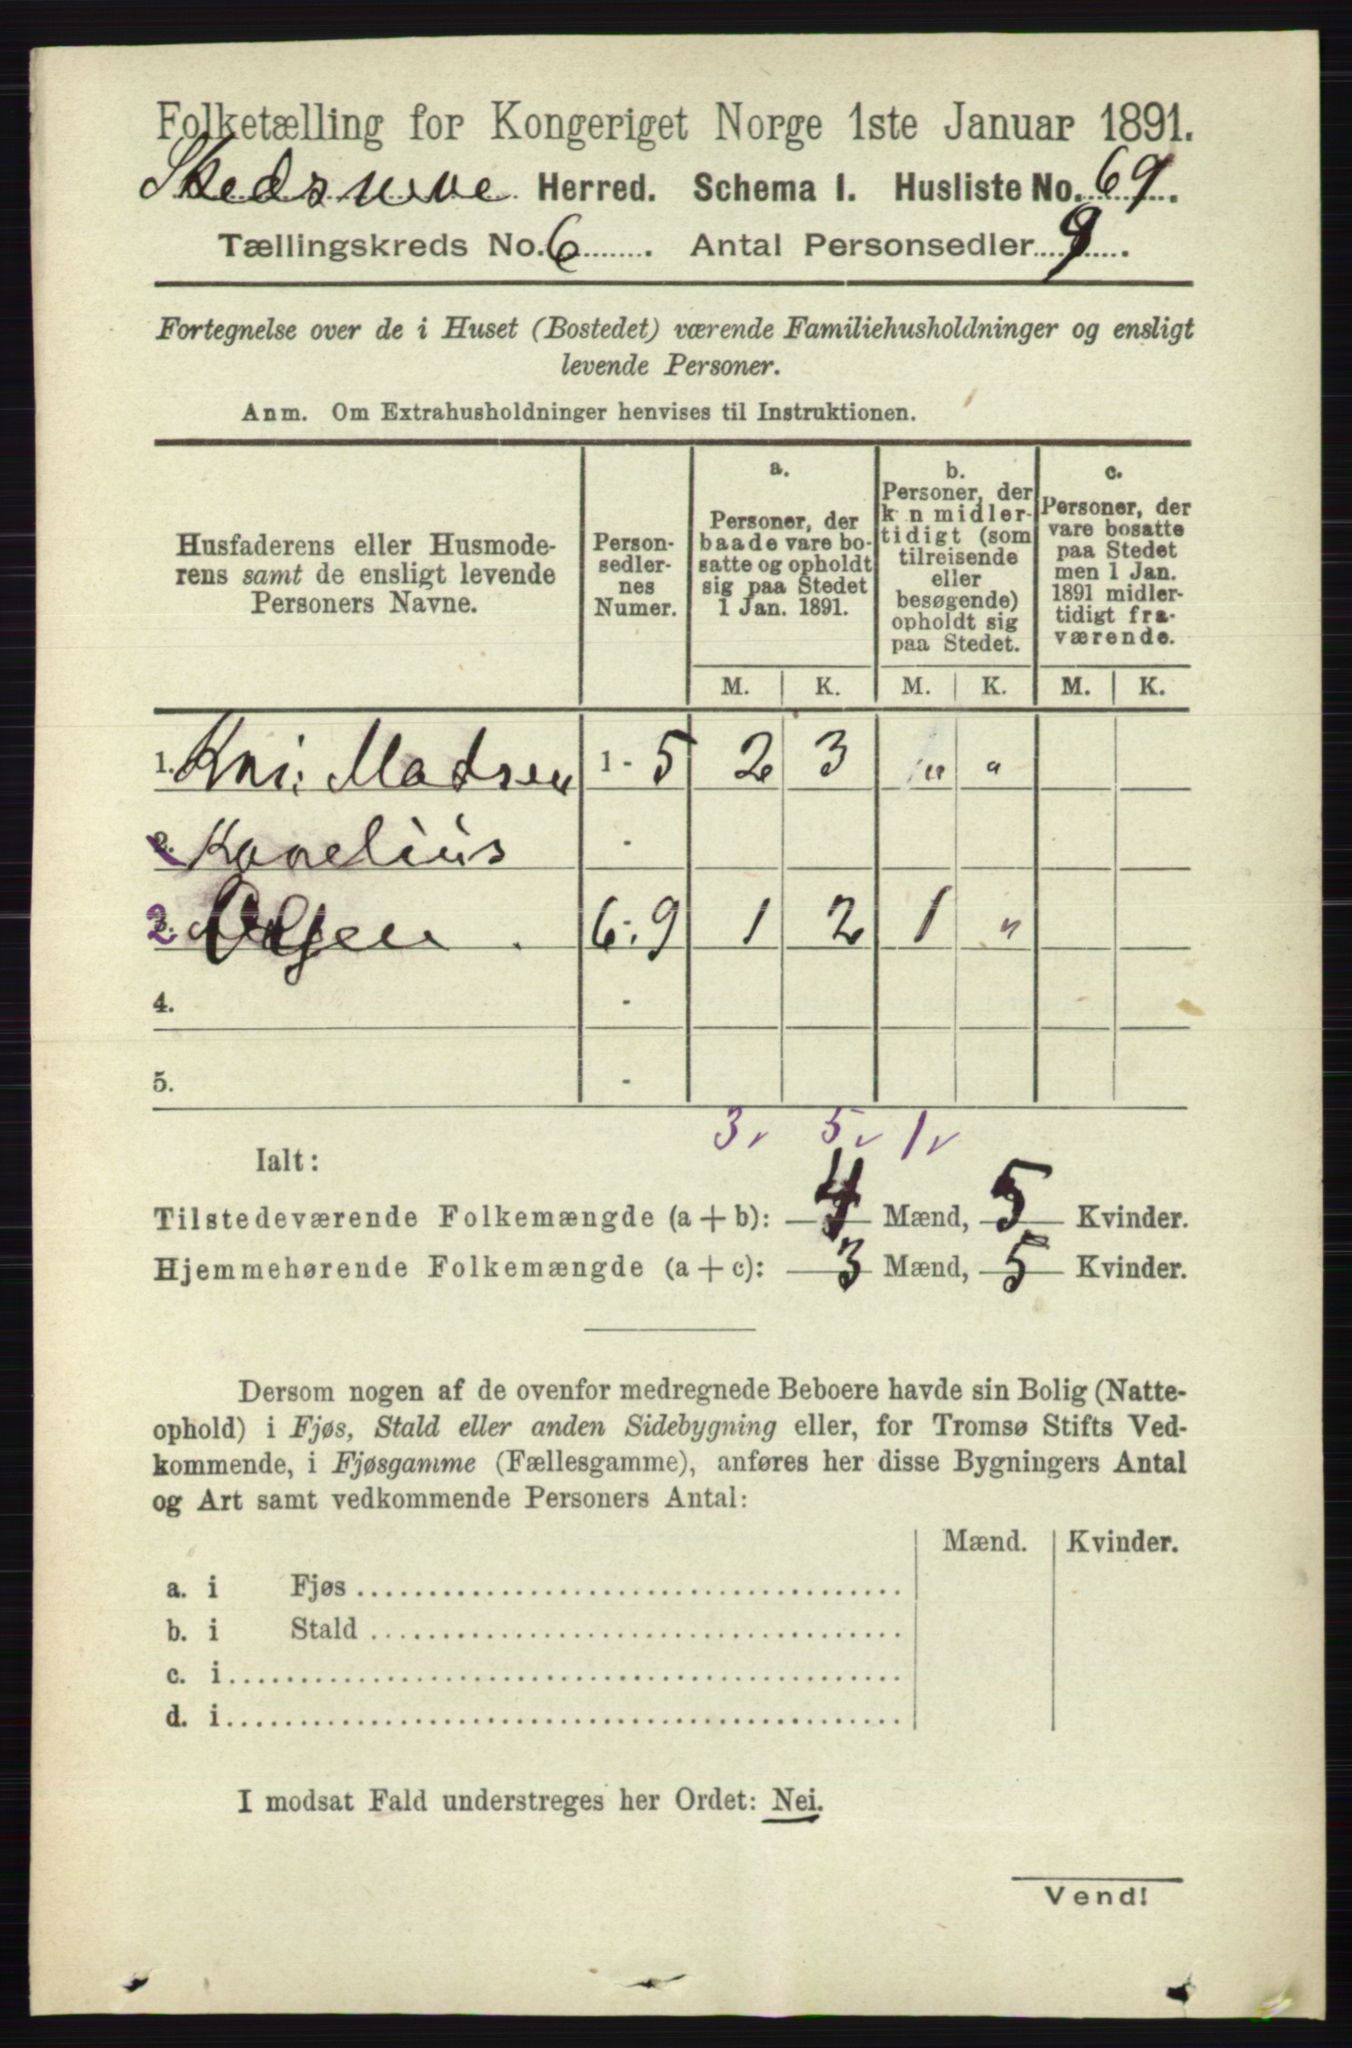 Folketælling for Kongeriget Norge 1ste Januar 1891.
Herred. Schema I. Husliste No. 69.
Tællingskreds No. 6. Antal Personsedler 9.
Fortegnelse over de i Huset (Bostedet) værende Familiehusholdninger og ensligt
levende Personer.
Anm. Om Extrahusholdninger henvises til Instruktionen.
Husfaderens eller Husmode-
rens samt de ensligt levende
Personers Navne.
Person-
sedler-
nes
Numer.
a.
Personer, der
baade vare bo-
satte og opholdt
sig paa Stedet
1 Jan. 1891.
b.
Personer, der
k n midler-
tidigt (som
tilreisende
eller
besøgende)
opholdt sig
paa Stedet.
c.
Personer, der
vare bosatte
paa Stedet
men 1 Jan.
1891 midler-
tidigt fra-
værende.
M. K. M. K. M. K.
1. Kni: Madsen 1 - 5 2 3 " "
2. Kornelius -
2 Olsen . 6 - 9 1 2 1 "
4. -
5. -
3 5 1
Ialt:
Tilstedeværende Folkemængde (a + b): 4 Mænd, 5 Kvinder.
Hjemmehørende Folkemængde (a + c): 3 Mænd, 5 Kvinder.
Dersom nogen af de ovenfor medregnede Beboere havde sin Bolig (Natte-
ophold) i Fjøs, Stald eller anden Sidebygning eller, for Tromsø Stifts Ved-
kommende, i Fjøsgamme (Fællesgamme), anføres her disse Bygningers Antal
og Art samt vedkommende Personers Antal:
Mænd. Kvinder.
a. i Fjøs
b. i Stald
c. i
d. i
I modsat Fald understreges her Ordet: Nei.
Vend!